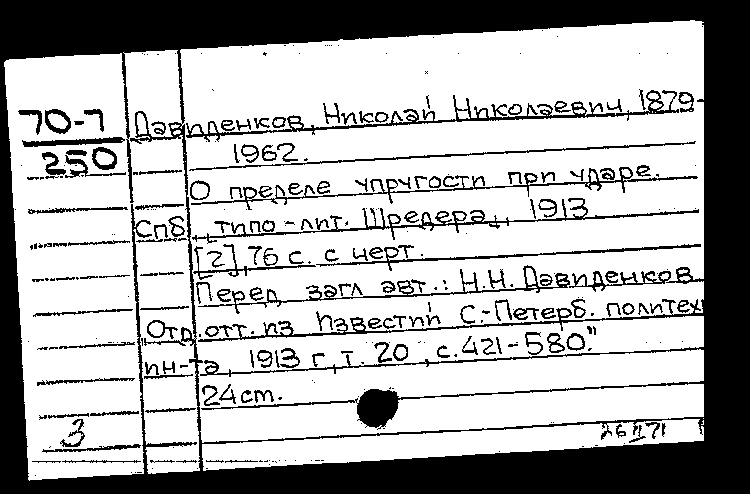 70-7 Давиденков, Николай Николаевич, 1879-
250 1962.
О пределе упругости при ударе.
Спб., типо-лит. Шредера, 1913.
[2], 76 с. с черт.
Перед загл авт.: Н.Н. Давиденков
"Отд. отт. из Известий С.-Петерб. политехн
ин-та, 1913 г, т. 20, с. 421-580."
24 cm.
3 26 II 71